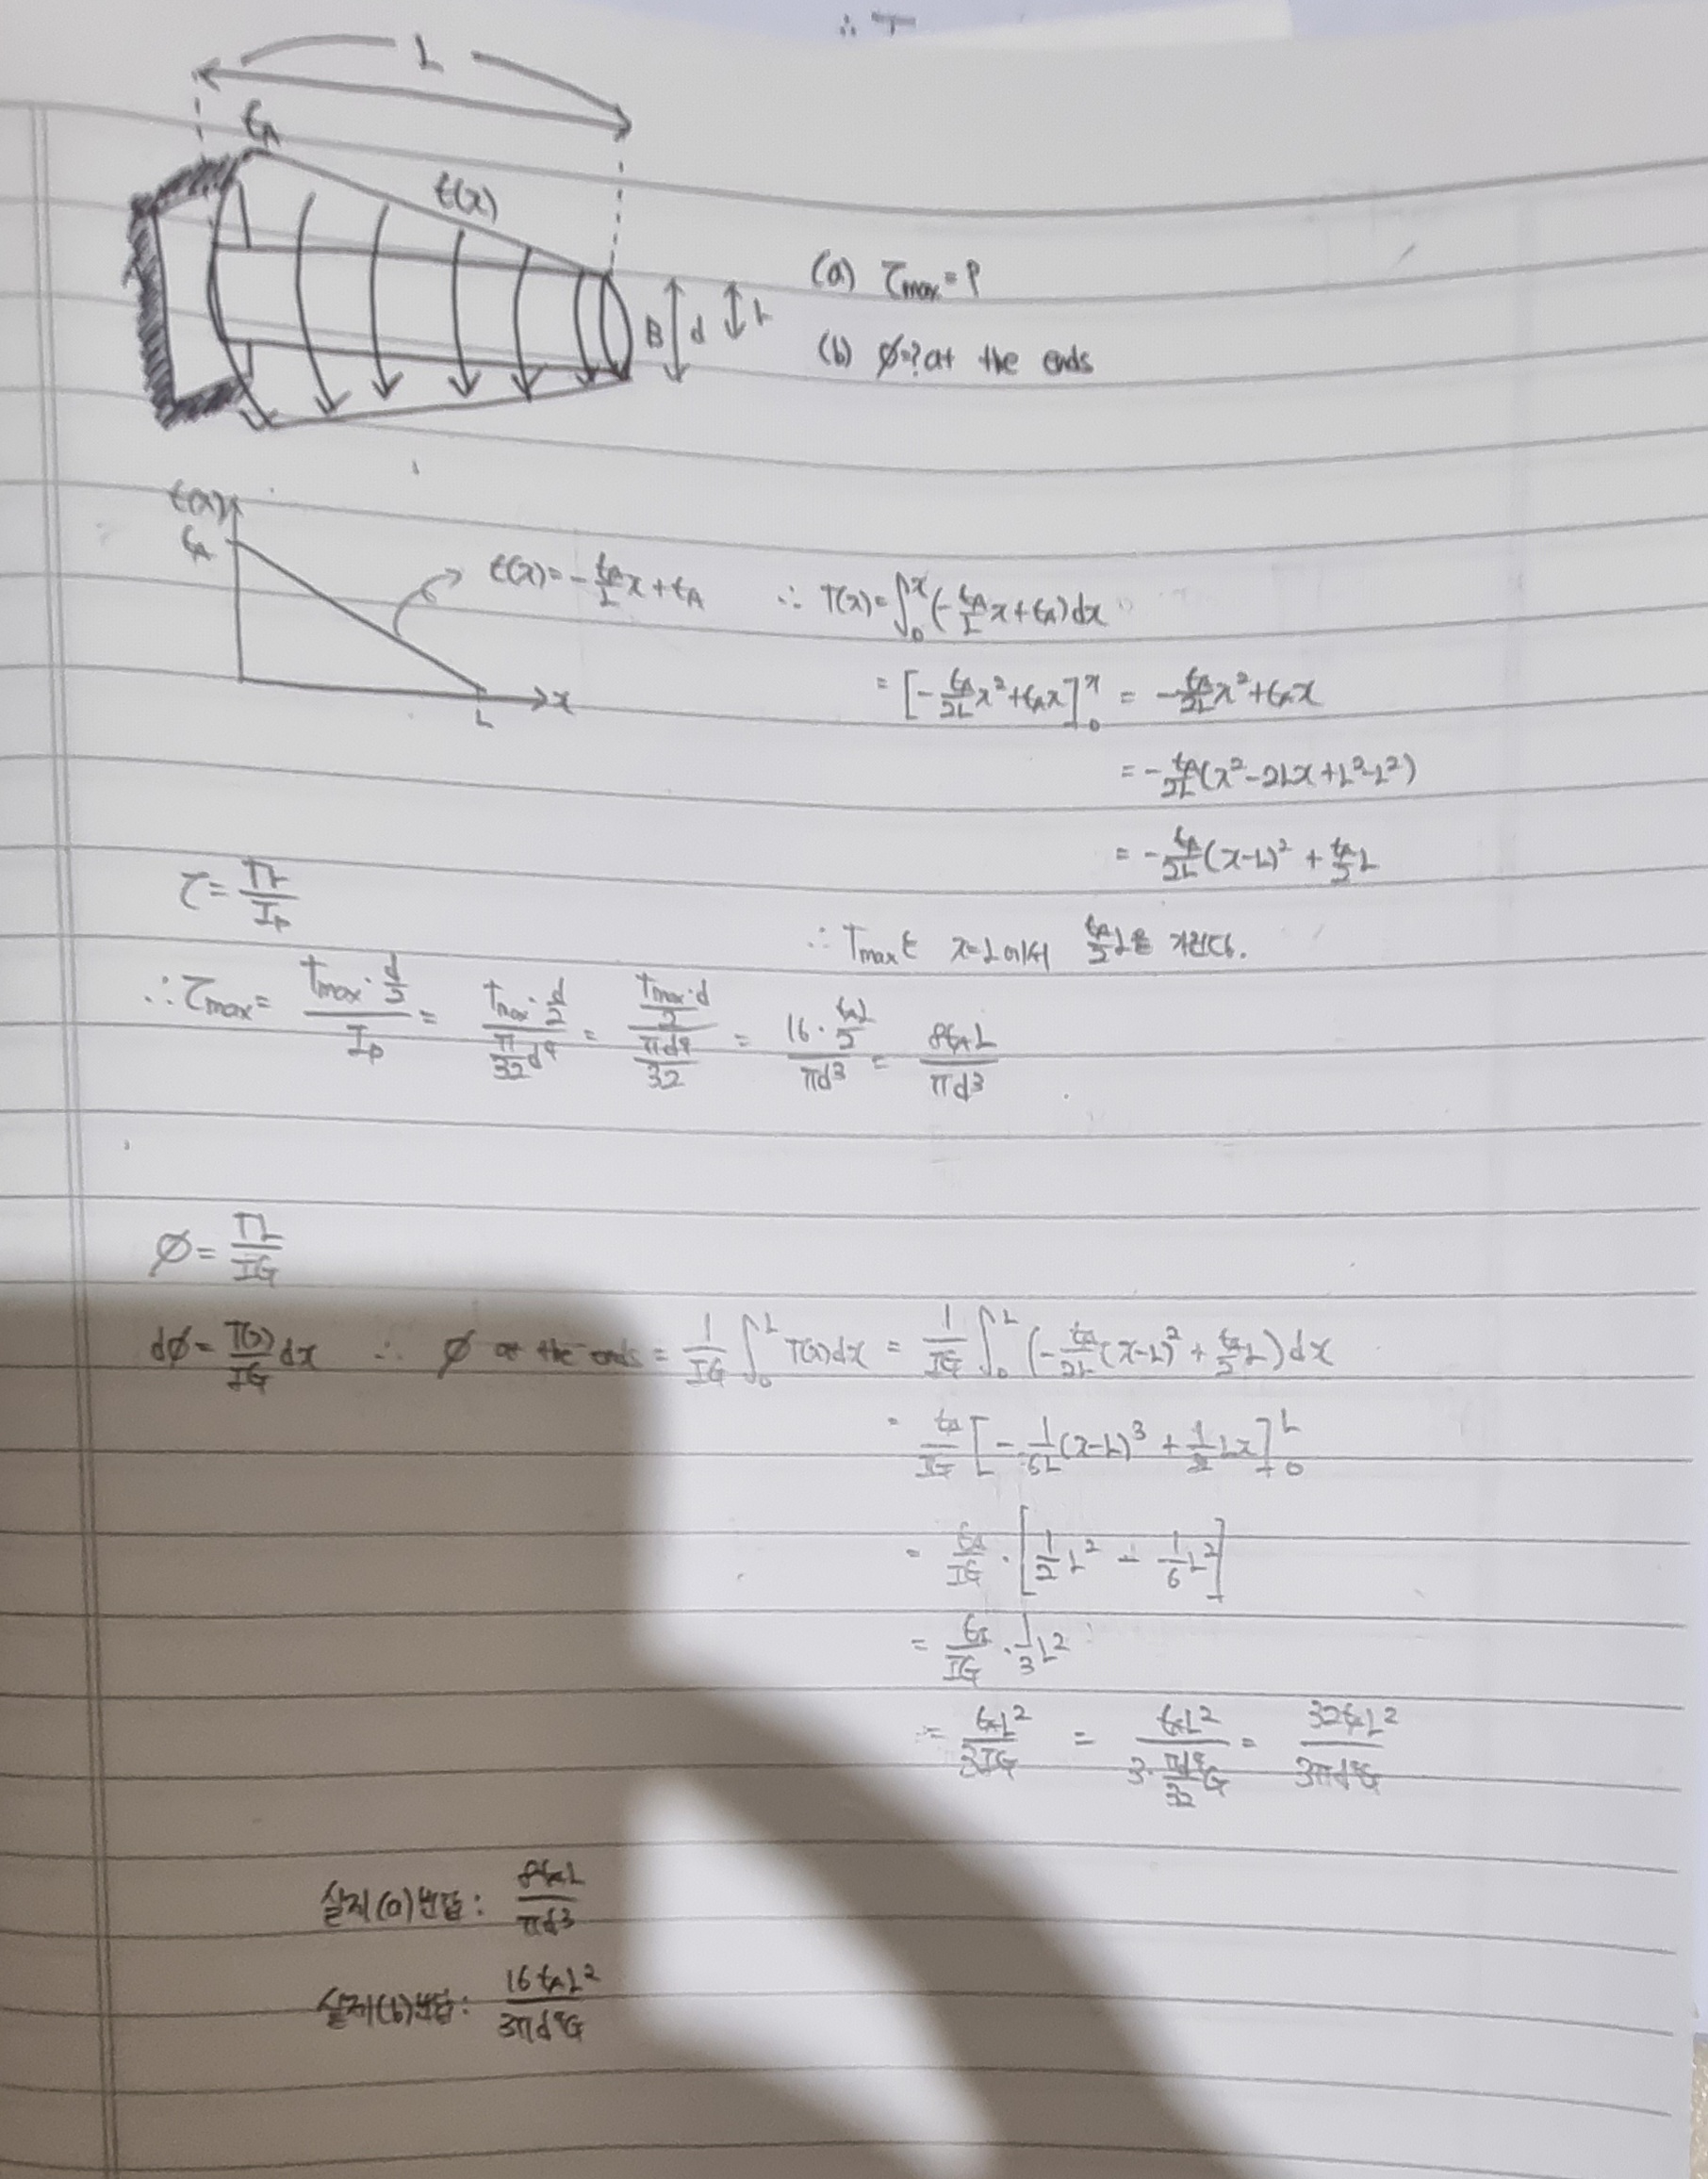 ∴ T
L
t_A
t(x)
B d r
(a) τ_max = ?
(b) ϕ=? at the ends
t(x)
t_A
t(x) = -\frac{t_A}{L}x + t_A ∴ T(x) = ∫_0^x (-\frac{t_A}{L}x + t_A) dx
L x
= [-\frac{t_A}{2L}x² + t_A x]_0^x = -\frac{t_A}{2L}x² + t_A x
= -\frac{t_A}{2L}(x² - 2Lx + L² - L²)
= -\frac{t_A}{2L}(x-L)² + \frac{t_A}{2}L
τ = \frac{Tr}{I_P}
∴ T_max는 x=L에서 \frac{t_A}{2}L을 가진다.
∴ τ_max = \frac{T_max·\frac{d}{2}}{I_P} = \frac{T_max·\frac{d}{2}}{\frac{π}{32}d⁴} = \frac{\frac{T_max·d}{2}}{\frac{πd⁴}{32}} = \frac{16·\frac{t_A L}{2}}{πd³} = \frac{8t_A L}{πd³}
ϕ = \frac{TL}{IG}
dϕ = \frac{T(x)}{IG}dx ∴ ϕ at the ends = \frac{1}{IG}∫_0^L T(x)dx = \frac{1}{IG}∫_0^L (-\frac{t_A}{2L}(x-L)² + \frac{t_A}{2}L)dx
= \frac{t_A}{IG}[-\frac{1}{6L}(x-L)³ + \frac{1}{2}Lx]_0^L
= \frac{t_A}{IG}·[\frac{1}{2}L² - \frac{1}{6}L²]
= \frac{t_A}{IG}·\frac{1}{3}L²
= \frac{t_A L²}{3IG} = \frac{t_A L²}{3·\frac{πd⁴}{32}G} = \frac{32t_A L²}{3πd⁴G}
실제(a)번답: \frac{8t_A L}{πd³}
실제(b)번답: \frac{16t_A L²}{3πd⁴G}